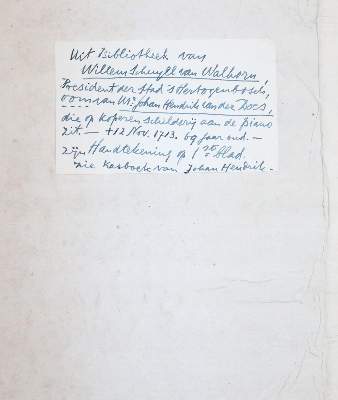 Uit Bibliotheek van
Willem Schuyll van Walhorn,
President der Stad 's Hertogenbosch,
oom van Mr. Johan Hendrik van der Does,
die op koperen schilderij aan de piano
zit. — + 12 Nov. 1713. 69 jaar oud. —
zijn Handtekening op 1ste blad
zie Kasboek van Johan Hendrik. -